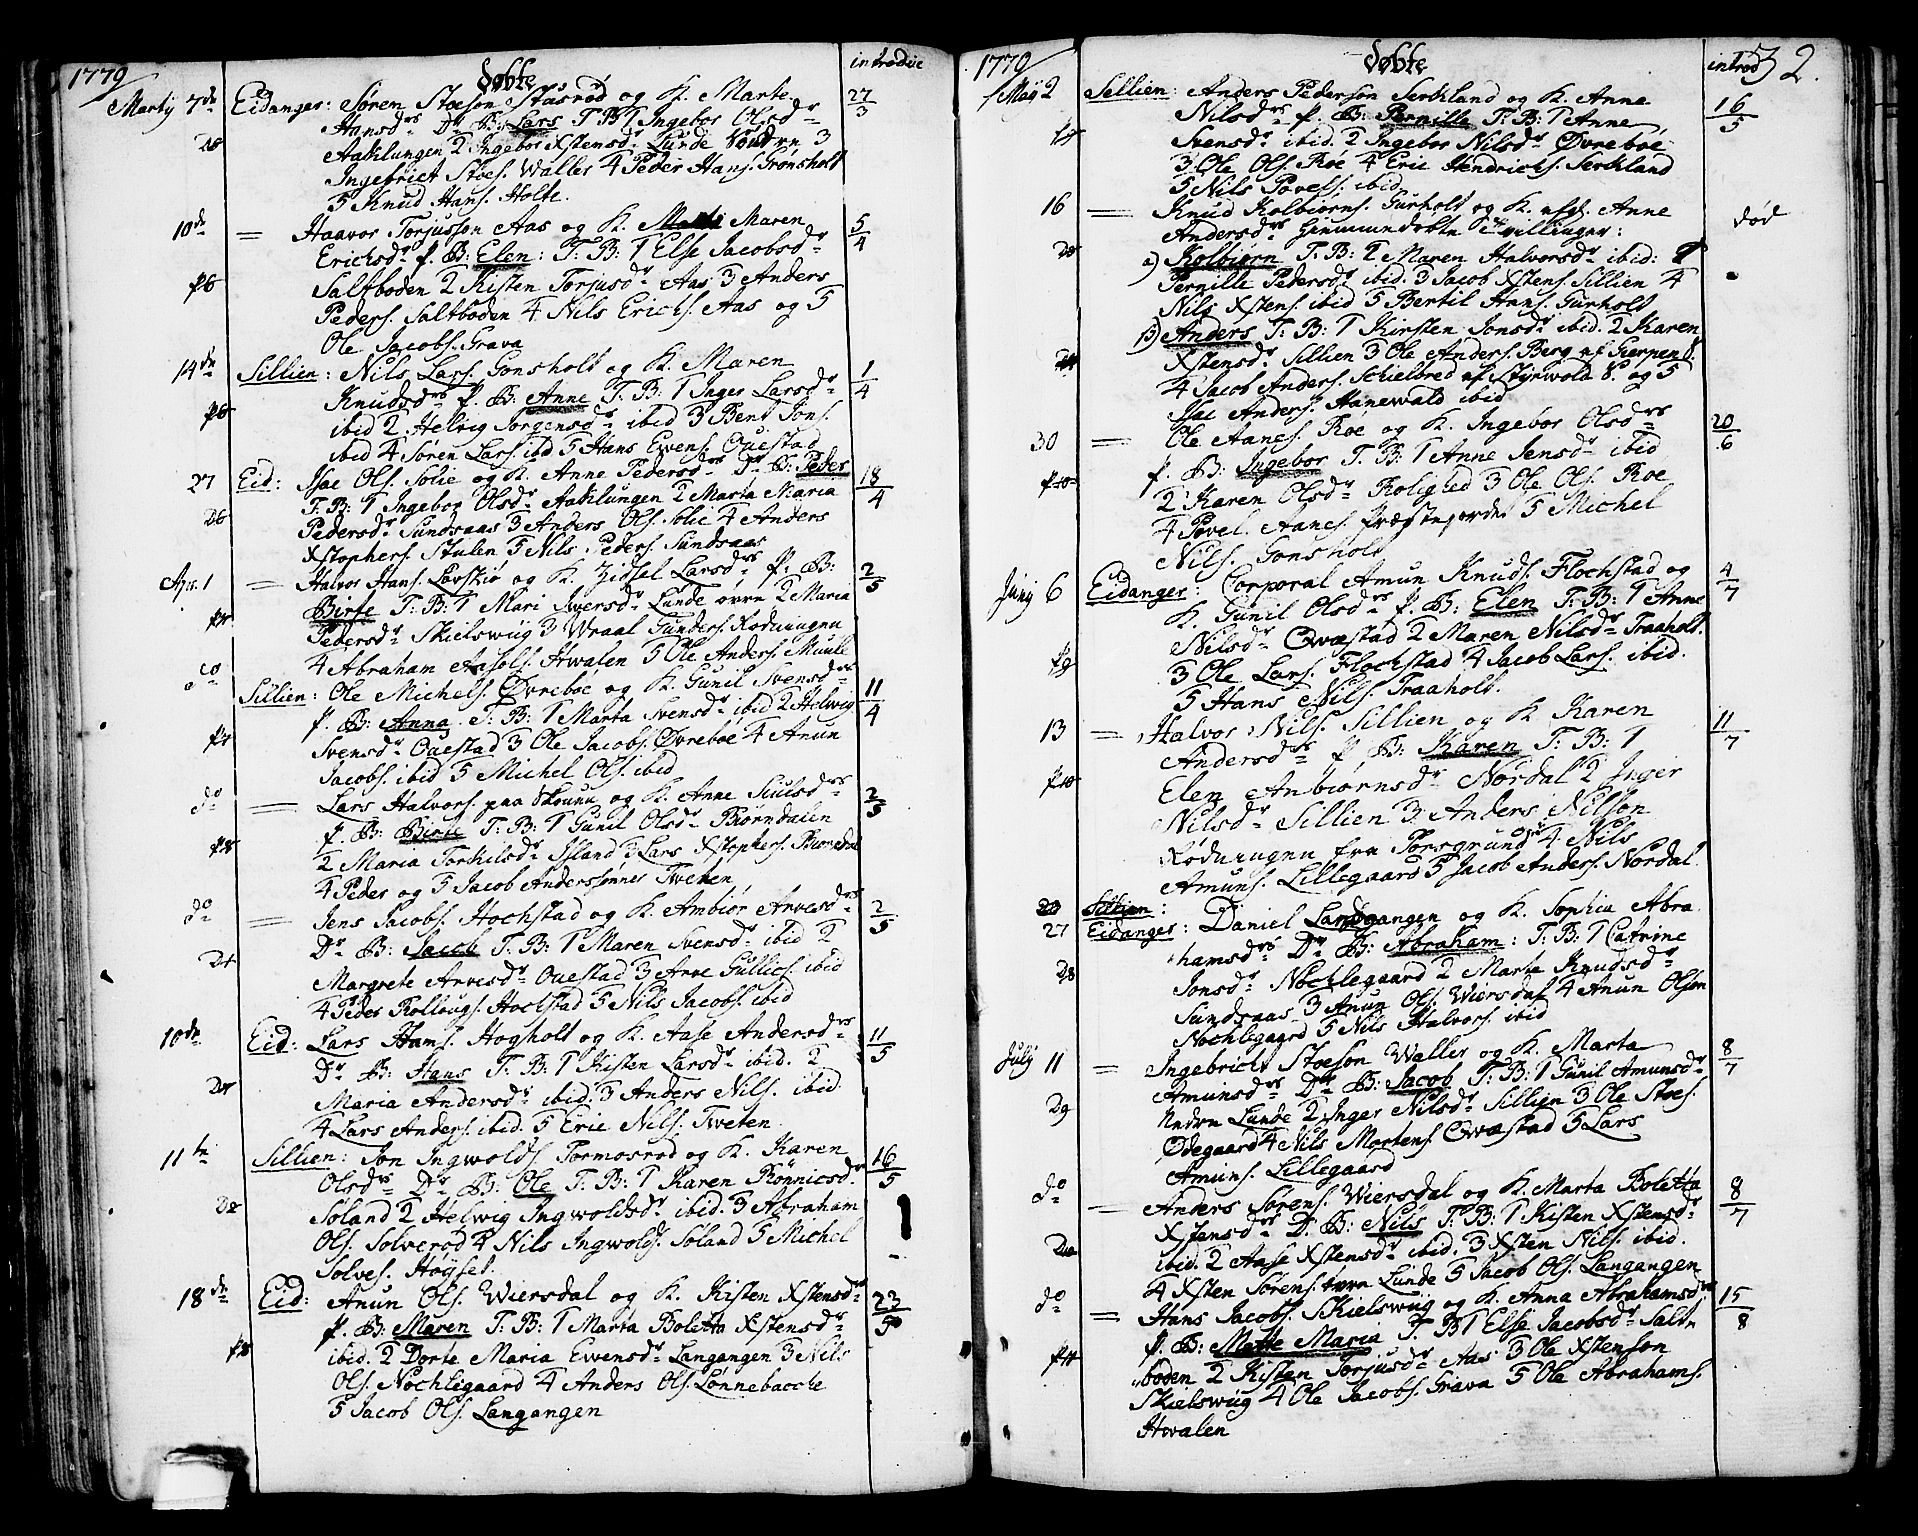 1779 Døbte introduc
Martij 7de Eidanger: Søren Stoeson Stusrød og K. Marte 27/3
Hansdr Dr B: Lars T. B: 1 Ingebor Olsdr
Aaklungen 2 Ingebor Xstensdr Lunde 3
Ingebrict Stoes. Waller 4 Peder Hans. Grønsholt
5 Knud Hans. Holte.
10de = Haavor Torjusson Aas og K. Maren 5/4
Erichsdr p. B: Elen: T: B: 1 Else Jacobsdr
Saltboden 2 Kisten Torjusdr Aas 3 Anders
Peders. Saltboden 4 Nils Erichs. Aas og 5
Ole Jacobs. Grava
14de Sillien: Nils Lars. Gonsholt og K. Maren 1/4
Knudsdr p. B: Anne T: B: 1 Inger Larsdr
ibid 2 Helvig Jorgensdr ibid 3 Bent Jons.
ibid 4 Søren Lars. ibd 5 Hans Ewens. Ouestad
27 Eid: Isac Ols. Solie og K. Anne Pedersdr Dr B: Peder 18/4
T: B: 1 Ingebor Olsdr Aaklungen 2 Marta Maria
Pedersdr Sundsaas 3 Anders Ols. Solie 4 Anders
Xstophers. Stulen 5 Nils Peders. Sundsaas
Apr. 1 = Halvor Hans. Lavskiø og K. Zidsel Larsdr p: B: 2/5
Birte T: B: 1 Mari Iwersdr Lunde øvre 2 Maria
Pedersdr Skielswiig 3 Wraal Gunders. Rødningen
4 Abraham Aasols. Hvalen 5 Ole Anders. Muule
do Sillien: Ole Michels. Øvreboe og K. Gunil Svensdr 11/4
p. B: Anna. T: B: 1 Marta Svensdr ibid 2 Helwig
Svensdr Ouestad 3 Ole Jacobs. Øvreboe 4 Anun
Jacobs. ibid 5 Michel Ols. ibid
do = Lars Halvors. paa og K. Anne 2/5
p. B: Birte T: B: 1 Gunil Olsdr Biørndalen
2 Maria Torkilsdr Island 3 Lars Xstophers. Biørndal
4 Peder og 5 Jacob Anderssønner Tweten
do = Jens Jacobs. Hochstad og K. Ambiør Arvesdr 2/5
Dr B: Jacob T: B: 1 Maren Svensdr ibid 2
Margrete Arvesdr Ouestad 3 Arve Gullics. ibid
4 Peder Rollougs. Hochstad 5 Nils Jacobs. ibid
10de Eid: Lars Hans. Hogholt og K. Aase Andersdr 11/5
Dr B: Hans T: B: 1 Kisten Larsdr ibid. 2
Maria Andersdr ibid. 3 Anders Nils. ibid
4 Lars Anders. ibid. 5 Eric Nils. Tweten
11te Sillien: Jon Ingwolds. Tormosrod og K. Karen 16/5
Olsdr Dr B: Ole T: B: 1 Karen Rönnicsdr
Soland 2 Helwig Ingwoldsdr ibid. 3 Abraham
Ols. Solverod 4 Nils Ingwolds. Søland 5 Michel
Solves. Høyset
18de Eid: Anun Ols. Wiersdal og K. Kisten Xstensdr 23/5
p. B: Maren T: B: 1 Marta Boletta Xstensdr
ibid. 2 Dorte Maria Ewensdr Langangen 3 Nils
Ols. Nochlegaard 4 Anders Ols. Lønnebacche
5 Jacob Ols. Langangen
1779 Døbte introd 32.
May 2 Sillien: Anders Pederson Serkland og K. Anne 16/5
Nilsdr p. B: Pernille T: B: 1 Anne
Svensdr ibid. 2 Ingebor Nilsdr Øvreboe
3 Ole Ols. Roe 4 Eric Hendrichs. Serkland
5 Nils Povels. ibid
16 = Knud Kolbiørns. Gurholt og K. Anne død
Andersdr Giemmendøbte Tvillinger:
a) Kolbiørn T. B: 1 Maren Halvorsdr ibid: 2
Pernille Pedersdr ibid. 3 Jacob Xstens. Sillien 4
Nils Xstens. ibid 5 Bertil Hans. Gurholt
B) Anders T: B: 1 Kirsten Jonsdr ibid. 2 Karen
Xstensdr Sillien 3 Ole Anders. Berg af Gierpen S.
4 Jacob Anders. Schielbred af S. og 5
Isac Anders. Hanewald ibid
30 = Ole Aanes. Roe og K. Ingebor Olsdr 20/6
p. B: Ingebor T. B: 1 Anne Jensdr ibid
2 Karen Olsdr Roligled 3 Ole Ols. Roe
4 Povel Aanes. Præstejordet 5 Michel
Nils. Gonsholt
Junij 6 Eidanger: Corporal Amun Knuds. Flochstad og 4/7
K. Gunil Olsdr p. B: Elen T: B: 1 Anne
Nilsdr Qwæstad 2 Maren Nilsdr Traaholt.
3 Ole Lars. Flochstad 4 Jacob Lars. ibid.
5 Hans Nils. Traaholt.
13 = Halvor Nils. Sillien og K. Karen 11/7
Andersdr p. B: Karen T: B: 1
Elen Anbiørnsdr Nordal 2 Inger
Nilsdr Sillien 3 Anders Nilson
Rødningen fra Porsgrund og 4 Nils
Amuns. Lillegaard 5 Jacob Anders. Nordal.
20 Sillien:
27 Eidanger: Daniel Langangen og K. Sophia Abra
hamsdr Dr B: Abraham: T: B: 1 Catrine
Jonsdr Nochlegaard 2 Marte Knudsdr
Sundsaas 3 Anun Ols. Wiersdal 4 Anun Olson
Nochlegaard 5 Nils Halvors. ibid
July 11 = Ingebricht Stoeson Waller og K. Marta 8/7
Amunsdr Dr B: Jacob T: B: 1 Gunil Amunsdr
Nedre Lunde 2 Inger Nilsdr Sillien 3 Ole Stoes.
Ødegaard 4 Nils Mortens. Qwæstad 5 Lars
Amuns. Lillegaard
do = Anders Sørens. Wiersdal og K. Marta Boletta 8/7
Xstensdr D. B: Nils T: B: 1 Kisten Xstensdr
ibid. 2 Aase Xstensdr ibid. 3 Xsten Nils. ibid.
4 Xsten Sørens. øvre Lunde 5 Jacob Ols. Langangen
do = Hans Jacobs. Skielswiig og K. Anna Abrahamsdr 15/8
p. B: Mette Maria T. B 1 Else Jacobsdr Salt
boden 2 Kisten Torjusdr Aas 3 Ole Xstenson
Skielswiig 4 Ole Jacobs. Grava 5 Ole Abrahams.
Hwalen